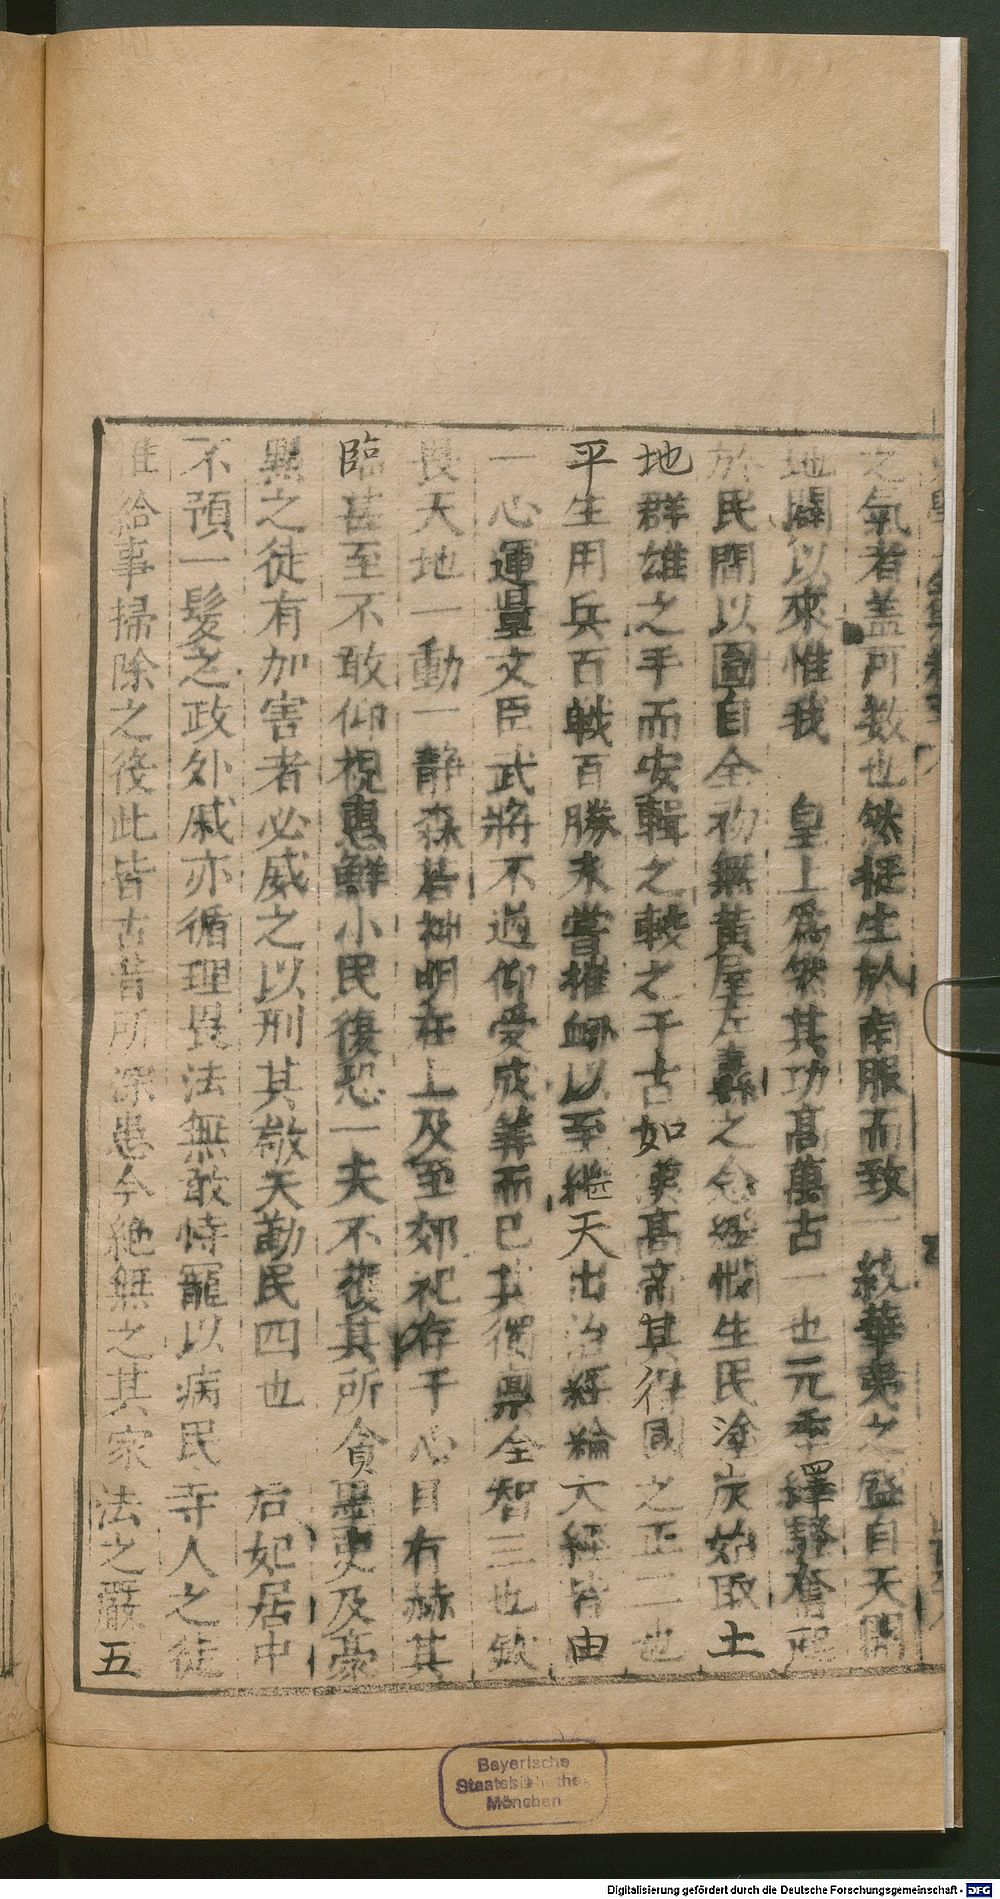 之氣者盖可数也然挺生於南服而致一統華夷之盛自天開
地闢以來惟我　皇上爲然其功髙萬古一也元季繹騷奮起
於民間以圖自全初無黃屋左纛之念繼憫生民塗炭始取土
地群雄之手而安輯之較之千古如漢髙帝其得國之正二也
平生用兵百戦百勝未嘗摧衂以至繼天出治經綸大經皆由
一心運量文臣武將不過仰受成筭而已其獨禀全智三也欽
畏天地一動一靜森若神明在上及至郊祀存于心目有赫其
臨甚至不敢仰視惠鮮小民復恐一夫不獲其所貪墨吏及豪
黠之徒有加害者必威之以刑其敬天勤民四也　后妃居中
不預一髮之政外戚亦循理畏法無敢恃寵以病民寺人之徒
惟給事掃除之役此皆古昔所深患今絶無之其家法之嚴五
Bayerische
Staatsbibliothek
München
Digitalisierung gefördert durch die Deutsche Forschungsgemeinschaft - DFG